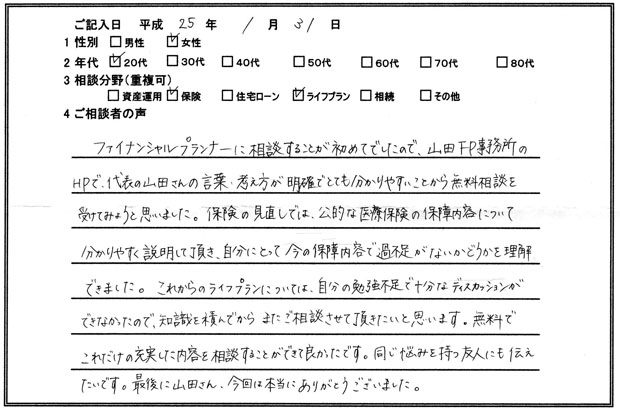 ご記入日 平成 25 年 1 月 31 日
1 性別 □男性 ☑女性
2 年代 ☑20代 □30代 □40代 □50代 □60代 □70代 □80代
3 相談分野(重複可)
□資産運用 ☑保険 □住宅ローン ☑ライフプラン □相続 □その他
4 ご相談者の声
ファイナンシャルプランナーに相談することが初めてでしたので、山田FP事務所の
HPで、代表の山田さんの言葉・考え方が明確でとても分かりやすいことから無料相談を
受けてみようと思いました。保険の見直しでは、公的な医療保険の保障内容について
分かりやすく説明して頂き、自分にとって今の保障内容で過不足がないかどうかを理解
できました。これからのライフプランについては、自分の勉強不足で十分なディスカッションが
できなかったので、知識を積んでから またご相談させて頂きたいと思います。無料で
これだけの充実した内容を相談することができて良かったです。同じ悩みを持つ友人にも伝え
たいです。最後に山田さん、今回は本当にありがとうございました。